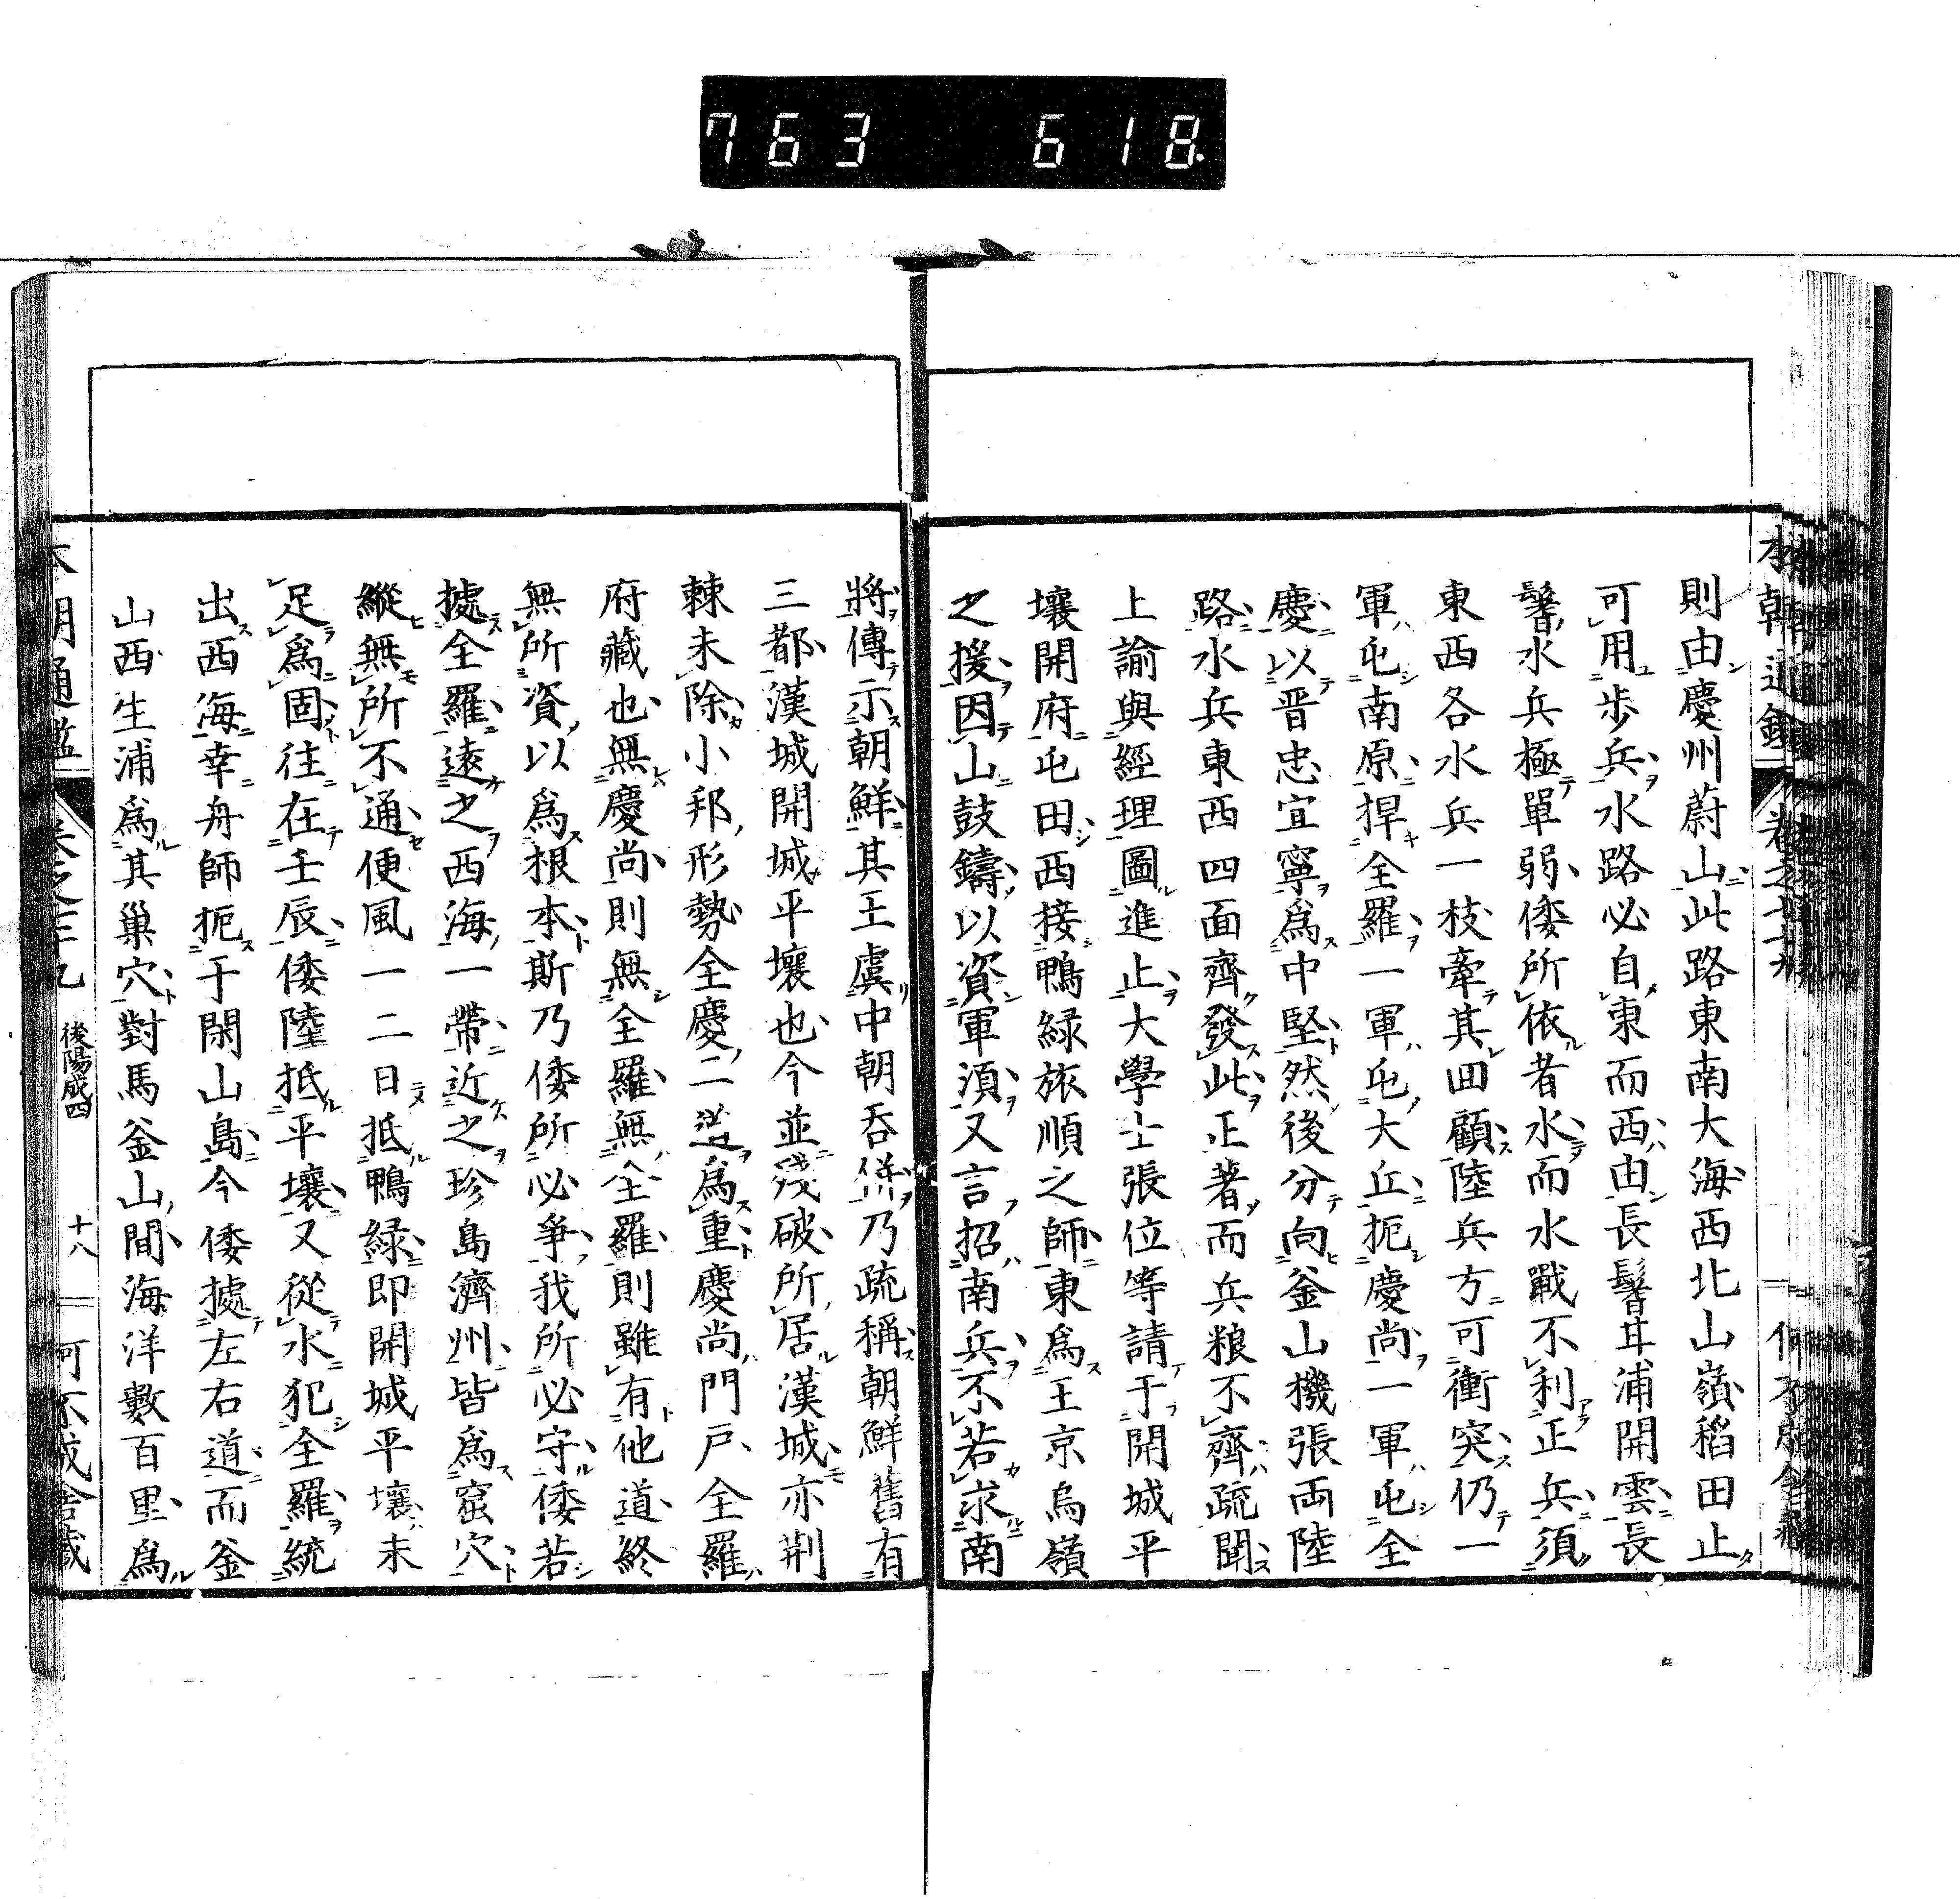 763 618
則由慶州蔚山此路東南大海西北山嶺稻田止
可用步兵水路必自東而西由長鬐其浦開雲長
鬐水兵極單弱倭所依者水而水戰不利正兵須
東西各水兵一枝牽其回顧陸兵方可衝突仍一
軍屯南原捍全羅一軍屯大丘扼慶尚一軍屯全
慶以晋忠宜寧爲中堅然後分向釜山機張両陸
路水兵東西四面齊發此正著而兵粮不齊疏聞
上諭與經理圖進止大學士張位等請于開城平
壤開府屯田西接鴨緑旅順之師東爲王京烏嶺
之援因山鼓鑄以資軍須又言招南兵不若求南
將傳示朝鮮其王虞中朝吞併乃疏稱朝鮮舊有
三都漢城開城平壤也今並殘破所居漢城亦荆
棘未除小邦形勢全慶二道爲重慶尚門戸全羅
府藏也無慶尚則無全羅無全羅則雖有他道終
無所資以爲根本斯乃倭所必爭我所必守倭若
據全羅遠之西海一帶近之珍島濟州皆爲窟穴
縱無所不通便風一二日抵鴨緑即開城平壤未
足爲固往在壬辰倭陸抵平壤又從水犯全羅統
出西海幸舟師扼于閑山島今倭據左右道而釜
山西生浦爲其巢穴對馬釜山間海洋數百里爲
後陽成四
十八